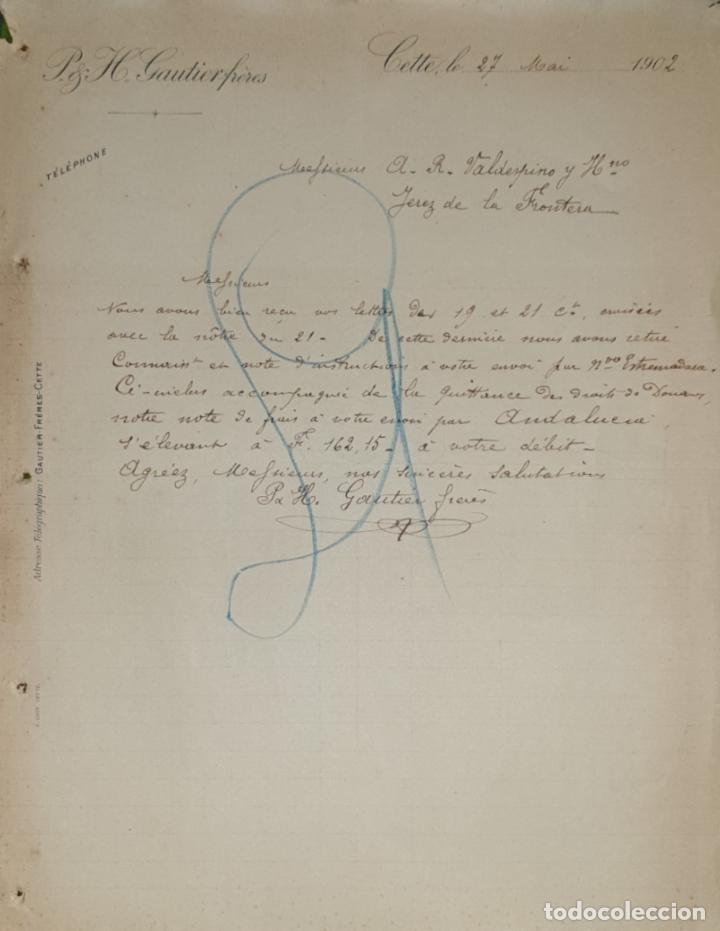 P. & H. Gautier frères
Cette, le 27 Mai 1902
TÉLÉPHONE
Messieurs A. R. Valdespino y Hno
Jerez de la Frontera
Messieurs
Nous avons bien reçu vos lettres des 19 et 21 ct, croisées
avec la nôtre du 21 - De cette dernière nous avons retiré
Connaist et note d'instructions à votre envoi par nvo Estremadura.
Ci-inclus accompagnée de la quittance des droits de Douane,
notre note de frais à votre envoi par Andalucia,
s'élevant à F. 162,15 - à votre débit -
Agréez, Messieurs, nos sincères salutations
P. & H. Gautier frères
Adresse Télégraphique: GAUTIER-FRÈRES-CETTE
todocoleccion